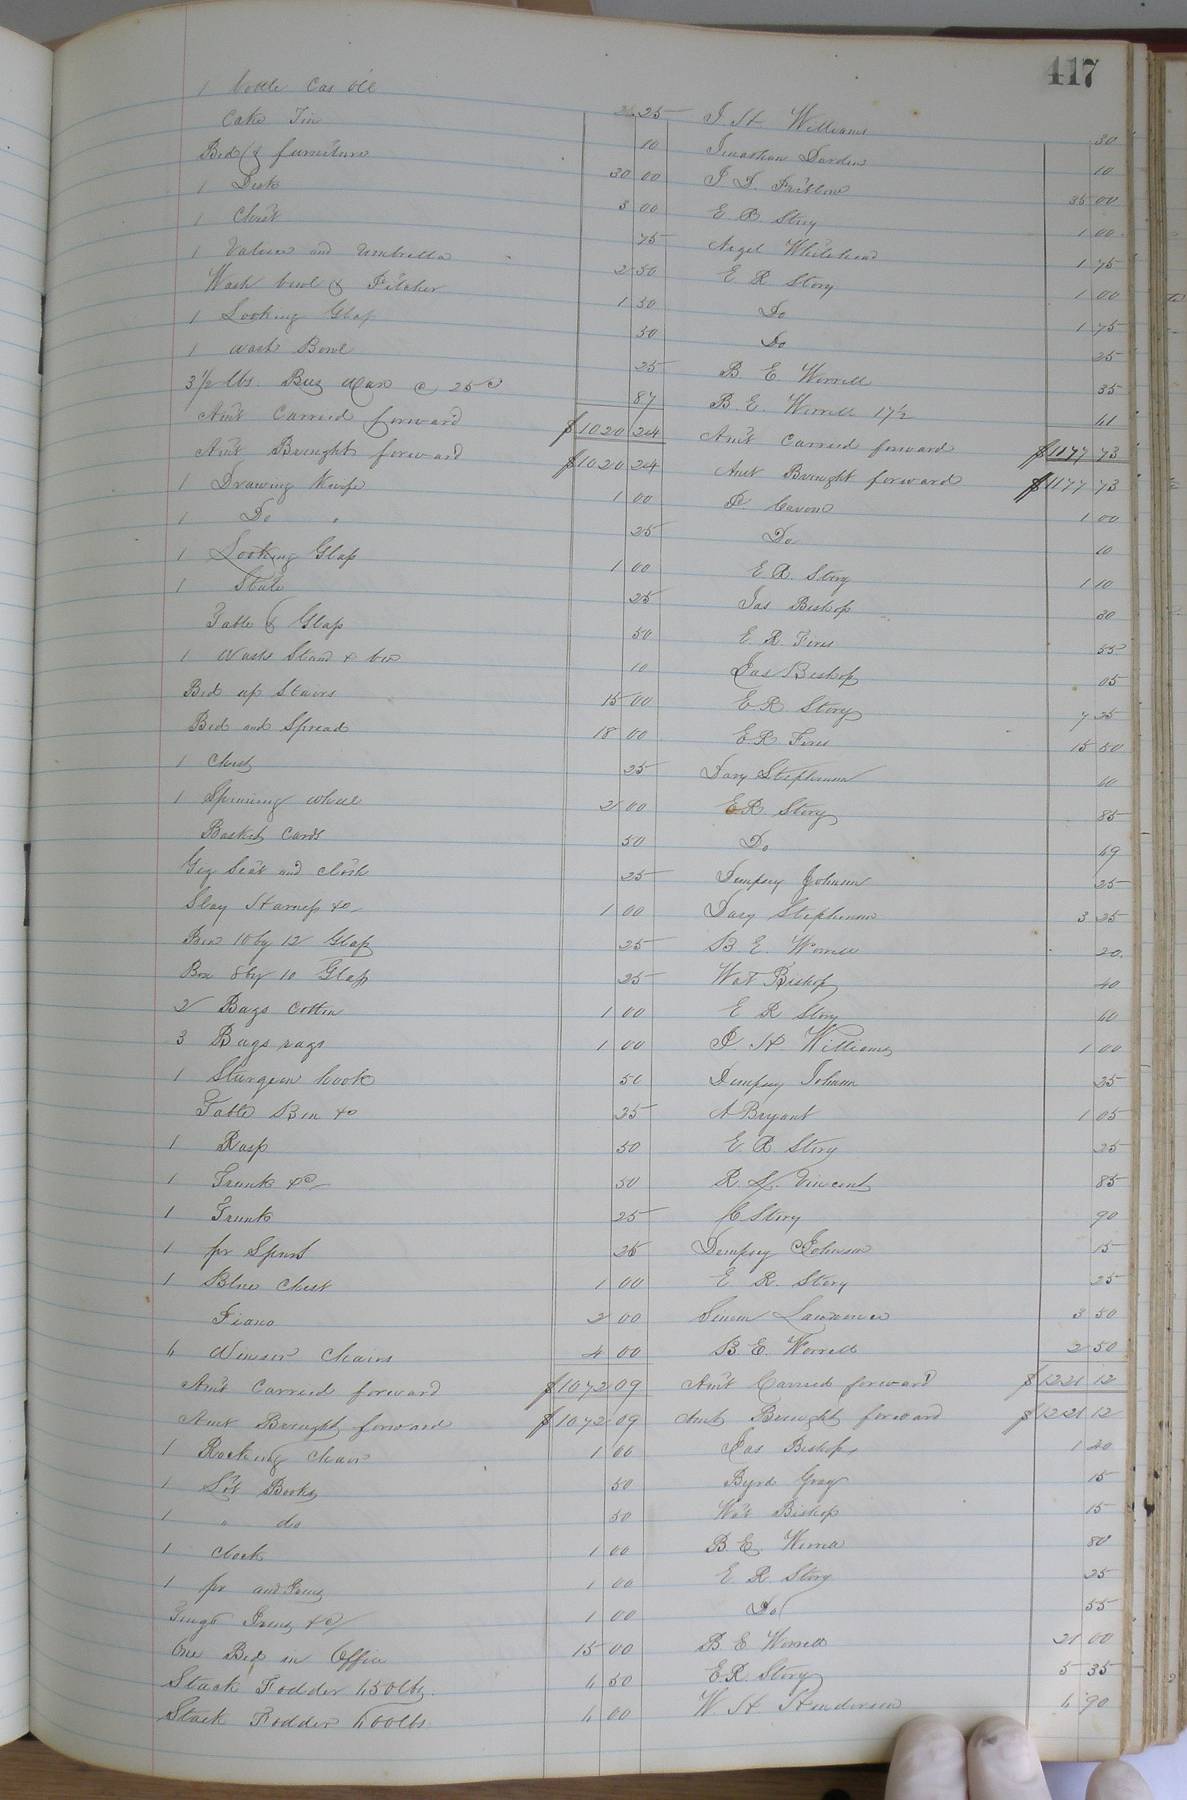 417
1 bottle Cas Oil 25 J H Williams 30
Cake Tin 10 Jonathan Darden 10
Bed & furniture 30 00 J D. 35 00
1 Desk 3 00 E R Story 1 00
1 Chest 75 Angel Whitehead 1 75
1 Valice and Umbrella 2 50 E R Story 1 00
Wash bowl & Pitcher 1 50 Do 1 75
1 Looking Glass 50 Do 25
1 Wash Bowl 25 B E Worrell 35
3 1/2 lbs. Wax @ 25 c 87 B. E. Worrell 17½ 61
Amt Carried forward $1020 24 Amt Carried forward $1177 73
Amt Brought forward $1020 24 Amt Brought forward $1177 73
1 Drawing Knife 1 00 D. 1 00
1 Do " 25 Do 10
1 Looking Glass 1 00 E R. Story 1 10
1 25 Jas Bishop 30
Table & Glass 50 E. R. Fires 55
1 Wash Stand & box 10 Jas Bishop 05
Bed up Stairs 15 00 E R Story 7 25
Bed and Spread 18 00 E R Fires 15 50
1 Chest 25 Davy Stephenson 60
1 Spinning wheel 2 00 E R Story 85
Basket Cards 50 Do 49
Gig Seat and cloth 25 Dempsey Johnson 25
Slay Harness &c 1 00 Davy Stephenson 3 25
Box 10 by 12 Glass 25 B E. Worrell 20
Box 8 by 10 Glass 25 Wat Bishop 40
2 Bags Cotton 1 00 E R Story 60
3 Bags rags 1 00 J. H Williams 1 00
1 Sturgeon hook 50 Dempsey Johnson 25
Table Box &c 25 A Bryant 1 05
1 Rasp 50 E R Story 25
1 Trunk &c 50 R. S. Vincent 85
1 Trunk 25 Story 90
1 pr Spurs 25 Dempsey Johnson 15
1 Blue Chest 1 00 E R. Story 25
Piano 2 00 Simon Lawrence 3 50
6 Winsor Chairs 4 00 B. E. Worrell 2 50
Amt Carried forward $1072 09 Amt Carried forward $1221 12
Amt Brought forward $1072 09 Amt Brought forward $1221 12
1 Rocking Chair 1 00 Jas Bishop 1 40
1 Lot Books 50 Byrd Gray 15
1 " do 50 Wat Bishop 15
1 Clock 1 00 B. E. Worrell 80
1 pr and Irons 1 00 E. R. Story 25
Irons &c 1 00 Do 55
One Bed in Office 15 00 B E Worrell 21 00
Stack Fodder 450 lbs. 4 50 E R. Story 5 35
Stack Fodder 400 lbs 4 00 W. H. Henderson 4 90